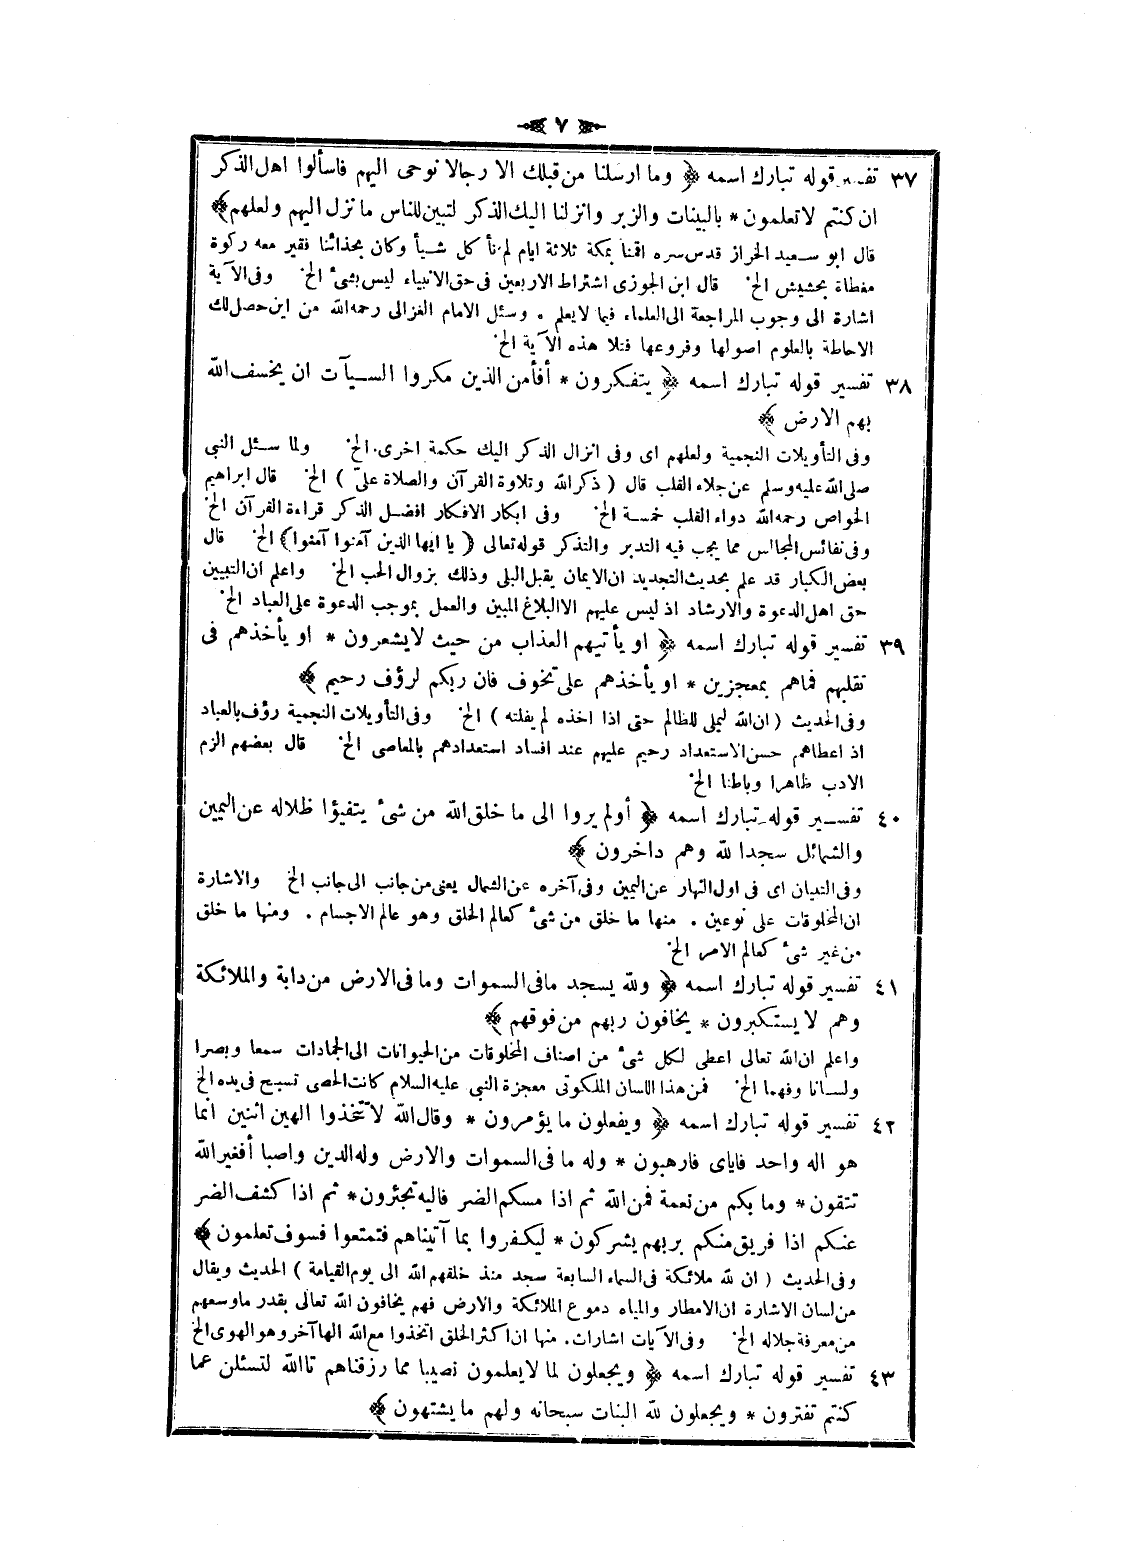 ٧
٣٧ تفسير قوله تبارك اسمه ﴿ وما ارسلنا من قبلك الا رجالا نوحى اليهم فاسألوا اهل الذكر
ان كنتم لا تعلمون * بالبينات والزبر وانزلنا اليك الذكر لتبين للناس ما نزل اليهم ولعلهم ﴾
قال ابو سعيد الخراز قدس سره اقمنا بمكة ثلاثة ايام لم نأ كل شيأ وكان بحذائنا فقير معه ركوة
مغطاة بحشيش الخ. قال ابن الجوزى اشتراط الاربعين فى حق الانبياء ليس بشئ الخ. وفى الآية
اشارة الى وجوب المراجعة الى العلماء فيما لا يعلم . وسئل الامام الغزالى رحمه الله من اين حصل لك
الاحاطة بالعلوم اصولها وفروعها فتلا هذه الآية الخ.
٣٨ تفسير قوله تبارك اسمه ﴿ يتفكرون * أفأمن الذين مكروا السيآت ان يخسف الله
بهم الارض ﴾
وفى التأويلات النجمية ولعلهم اى وفى انزال الذكر اليك حكمة اخرى الخ. ولما سئل النبى
صلى الله عليه وسلم عن جلاء القلب قال ( ذكر الله وتلاوة القرآن والصلاة علىّ ) الخ. قال ابراهيم
الخواص رحمه الله دواء القلب خمسة الخ. وفى ابكار الافكار افضل الذكر قراءة القرآن الخ.
وفى نفائس المجالس مما يجب فيه التدبر والتذكر قوله تعالى ﴿ يا ايها الذين آمنوا آمنوا ﴾ الخ. قال
بعض الكبار قد علم بحديث التجديد ان الايمان يقبل البلى وذلك بزوال الحب الخ. واعلم ان التبيين
حق اهل الدعوة والارشاد اذ ليس عليهم الا البلاغ المبين والعمل بموجب الدعوة على العباد الخ.
٣٩ تفسير قوله تبارك اسمه ﴿ او يأتيهم العذاب من حيث لا يشعرون * او يأخذهم فى
تقلبهم فماهم بمعجزين * او يأخذهم على تخوف فان ربكم لرؤف رحيم ﴾
وفى الحديث ( ان الله ليملى للظالم حتى اذا اخذه لم يفلته ) الخ. وفى التأويلات النجمية رؤف بالعباد
اذ اعطاهم حسن الاستعداد رحيم عليهم عند افساد استعدادهم بالمعاصى الخ. قال بعضهم الزم
الادب ظاهرا وباطنا الخ.
٤٠ تفسير قوله تبارك اسمه ﴿ أولم يروا الى ما خلق الله من شئ يتفيؤا ظلاله عن اليمين
والشمائل سجدا لله وهم داخرون ﴾
وفى التبيان اى فى اول النهار عن اليمين وفى آخره عن الشمال يعنى من جانب الى جانب الخ. والاشارة
ان المخلوقات على نوعين . منها ما خلق من شئ كعالم الخلق وهو عالم الاجسام . ومنها ما خلق
من غير شئ كعالم الامر الخ.
٤١ تفسير قوله تبارك اسمه ﴿ ولله يسجد مافى السموات وما فى الارض من دابة والملائكة
وهم لا يستكبرون * يخافون ربهم من فوقهم ﴾
واعلم ان الله تعالى اعطى لكل شئ من اصناف المخلوقات من الحيوانات الى الجمادات سمعا وبصرا
ولسانا وفهما الخ. فمن هذا اللسان الملكوتى معجزة النبى عليه السلام كانت الحصى تسبح فى يده الخ
٤٢ تفسير قوله تبارك اسمه ﴿ ويفعلون ما يؤمرون * وقال الله لا تتّخذوا الهين اثنين انما
هو اله واحد فاياى فارهبون * وله ما فى السموات والارض وله الدين واصبا أفغير الله
تتقون * وما بكم من نعمة فمن الله ثم اذا مسكم الضر فاليه تجئرون * ثم اذا كشف الضر
عنكم اذا فريق منكم بربهم يشركون * ليكفروا بما آتيناهم فتمتعوا فسوف تعلمون ﴾
وفى الحديث ( ان لله ملائكة فى السماء السابعة سجد منذ خلقهم الله الى يوم القيامة ) الحديث ويقال
من لسان الاشارة ان الامطار والمياه دموع الملائكة والارض فهم يخافون الله تعالى بقدر ماوسعهم
من معرفة جلاله الخ. وفى الآيات اشارات. منها ان اكثر الخلق اتخذوا مع الله الها آخر وهو الهوى الخ
٤٣ تفسير قوله تبارك اسمه ﴿ ويجعلون لما لا يعلمون نصيبا مما رزقناهم تالله لتسئلن عما
كنتم تفترون * ويجعلون لله البنات سبحانه ولهم ما يشتهون ﴾